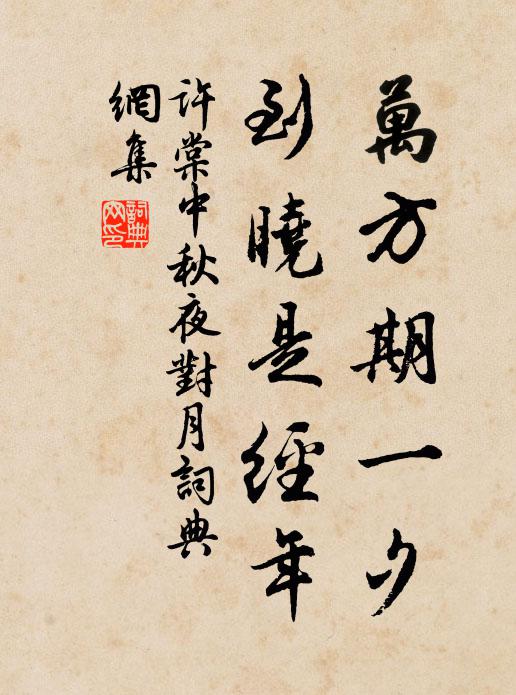 萬方期一夕
到曉是經年
許棠中秋夜對月詞典
網集
詞典網印